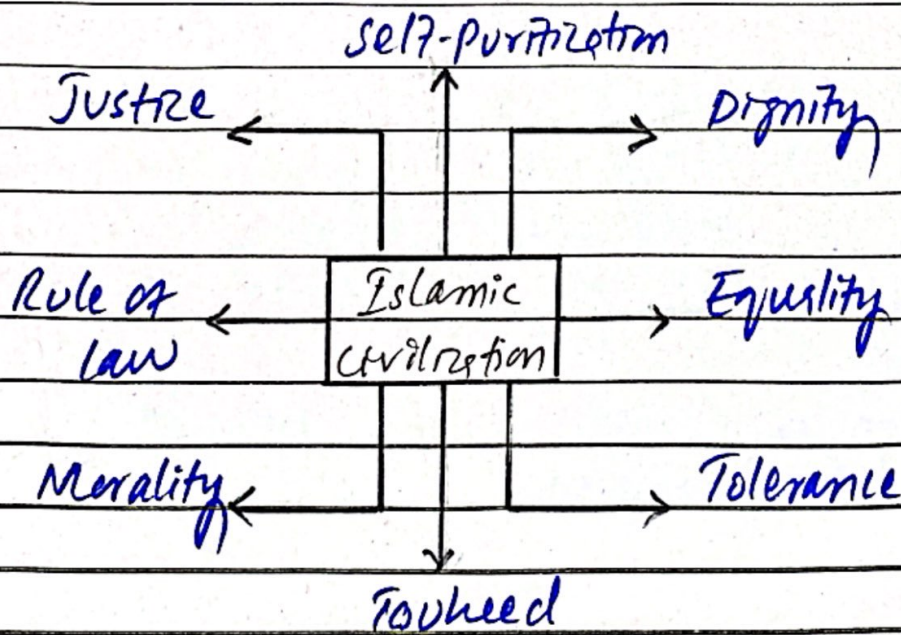 Self-purification
Justice
Dignity
Islamic
civilization
Rule of
law
Equality
Morality
Tolerance
Touheed